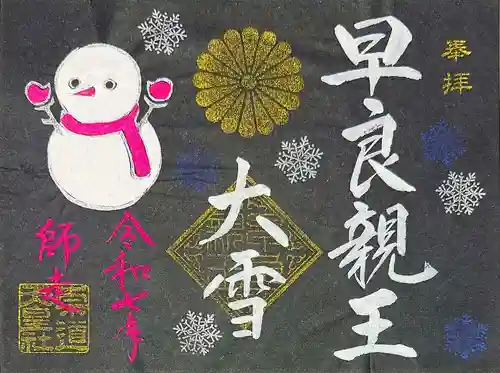 奉拝
早良親王
大雪
令和七年
師走